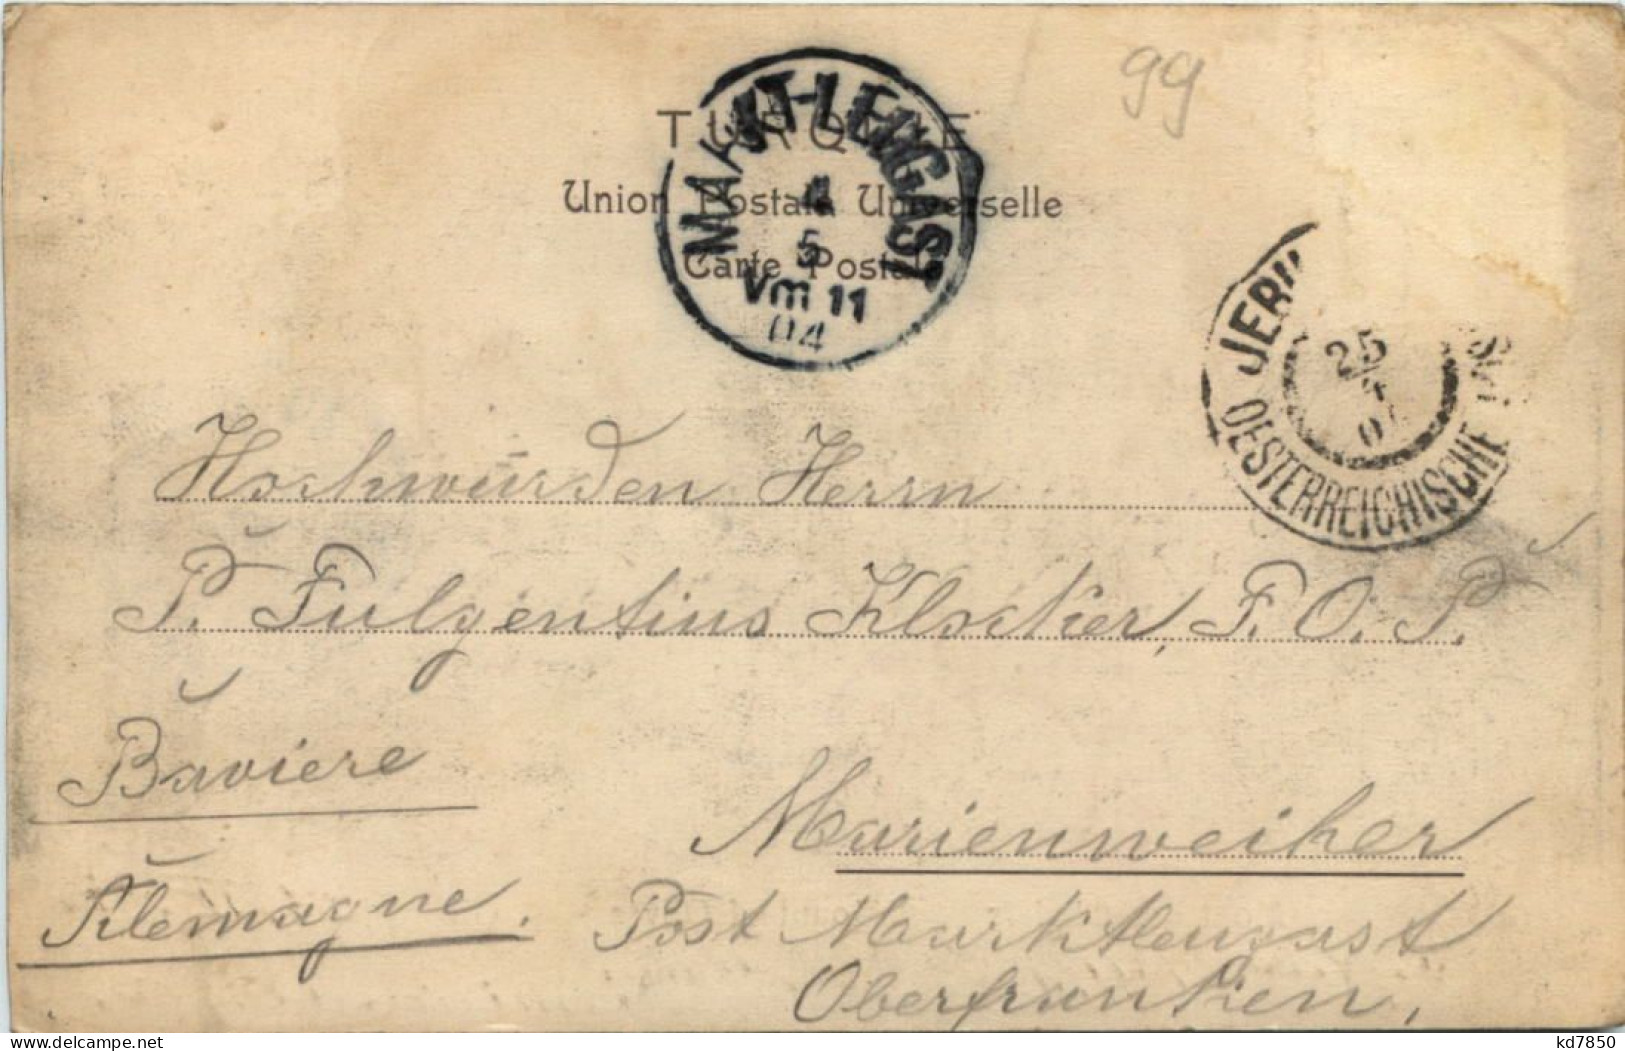 99
TURQUIE
Union Postale Universelle
Carte Postale
MARKT-LEUGAST
4
5
Vm 11
04
JERU
25
4
OESTERREICHISCHE POS
Hochwürden Herrn
P. Fulgentius Klocker, F. O. P.
Baviere
Marienweiher
Allemagne.
Post Marktleugast
Oberfranken,
kd7850